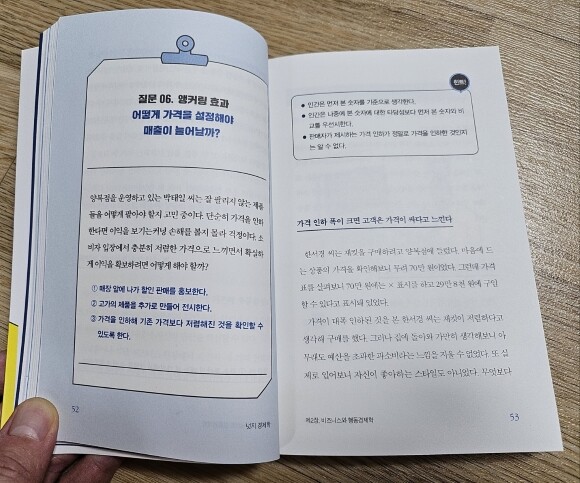 질문 06. 앵커링 효과
어떻게 가격을 설정해야
매출이 늘어날까?
양복점을 운영하고 있는 박태일 씨는 잘 팔리지 않는 제품
들을 어떻게 팔아야 할지 고민 중이다. 단순히 가격을 인하
한다면 이익을 보기는커녕 손해를 볼지 몰라 걱정이다. 소
비자 입장에서 충분히 저렴한 가격으로 느끼면서 확실하
게 이익을 확보하려면 어떻게 해야 할까?
① 매장 앞에 나가 할인 판매를 홍보한다.
② 고가의 제품을 추가로 만들어 전시한다.
③ 가격을 인하해 기존 가격보다 저렴해진 것을 확인할 수
있도록 한다.
52
넛지 경제학
힌트!
● 인간은 먼저 본 숫자를 기준으로 생각한다.
● 인간은 나중에 본 숫자에 대한 타당성보다 먼저 본 숫자와 비
교를 우선시한다.
● 판매자가 제시하는 가격 인하가 정말로 가격을 인하한 것인지
는 알 수 없다.
가격 인하 폭이 크면 고객은 가격이 싸다고 느낀다
한서경 씨는 재킷을 구매하려고 양복점에 들렀다. 마음에 드
는 상품의 가격을 확인해보니 무려 70만 원이었다. 그런데 가격
표를 살펴보니 70만 원에는 × 표시를 하고 29만 8천 원에 구입
할 수 있다고 표시돼 있었다.
가격이 대폭 인하된 것을 본 한서경 씨는 재킷이 저렴하다고
생각해 구매를 했다. 그러나 집에 돌아와 가만히 생각해보니 아
무래도 예산을 초과한 과소비라는 느낌을 지울 수 없었다. 또 실
제로 입어보니 자신이 좋아하는 스타일도 아니었다. 무엇보다
제2장. 비즈니스와 행동경제학
53